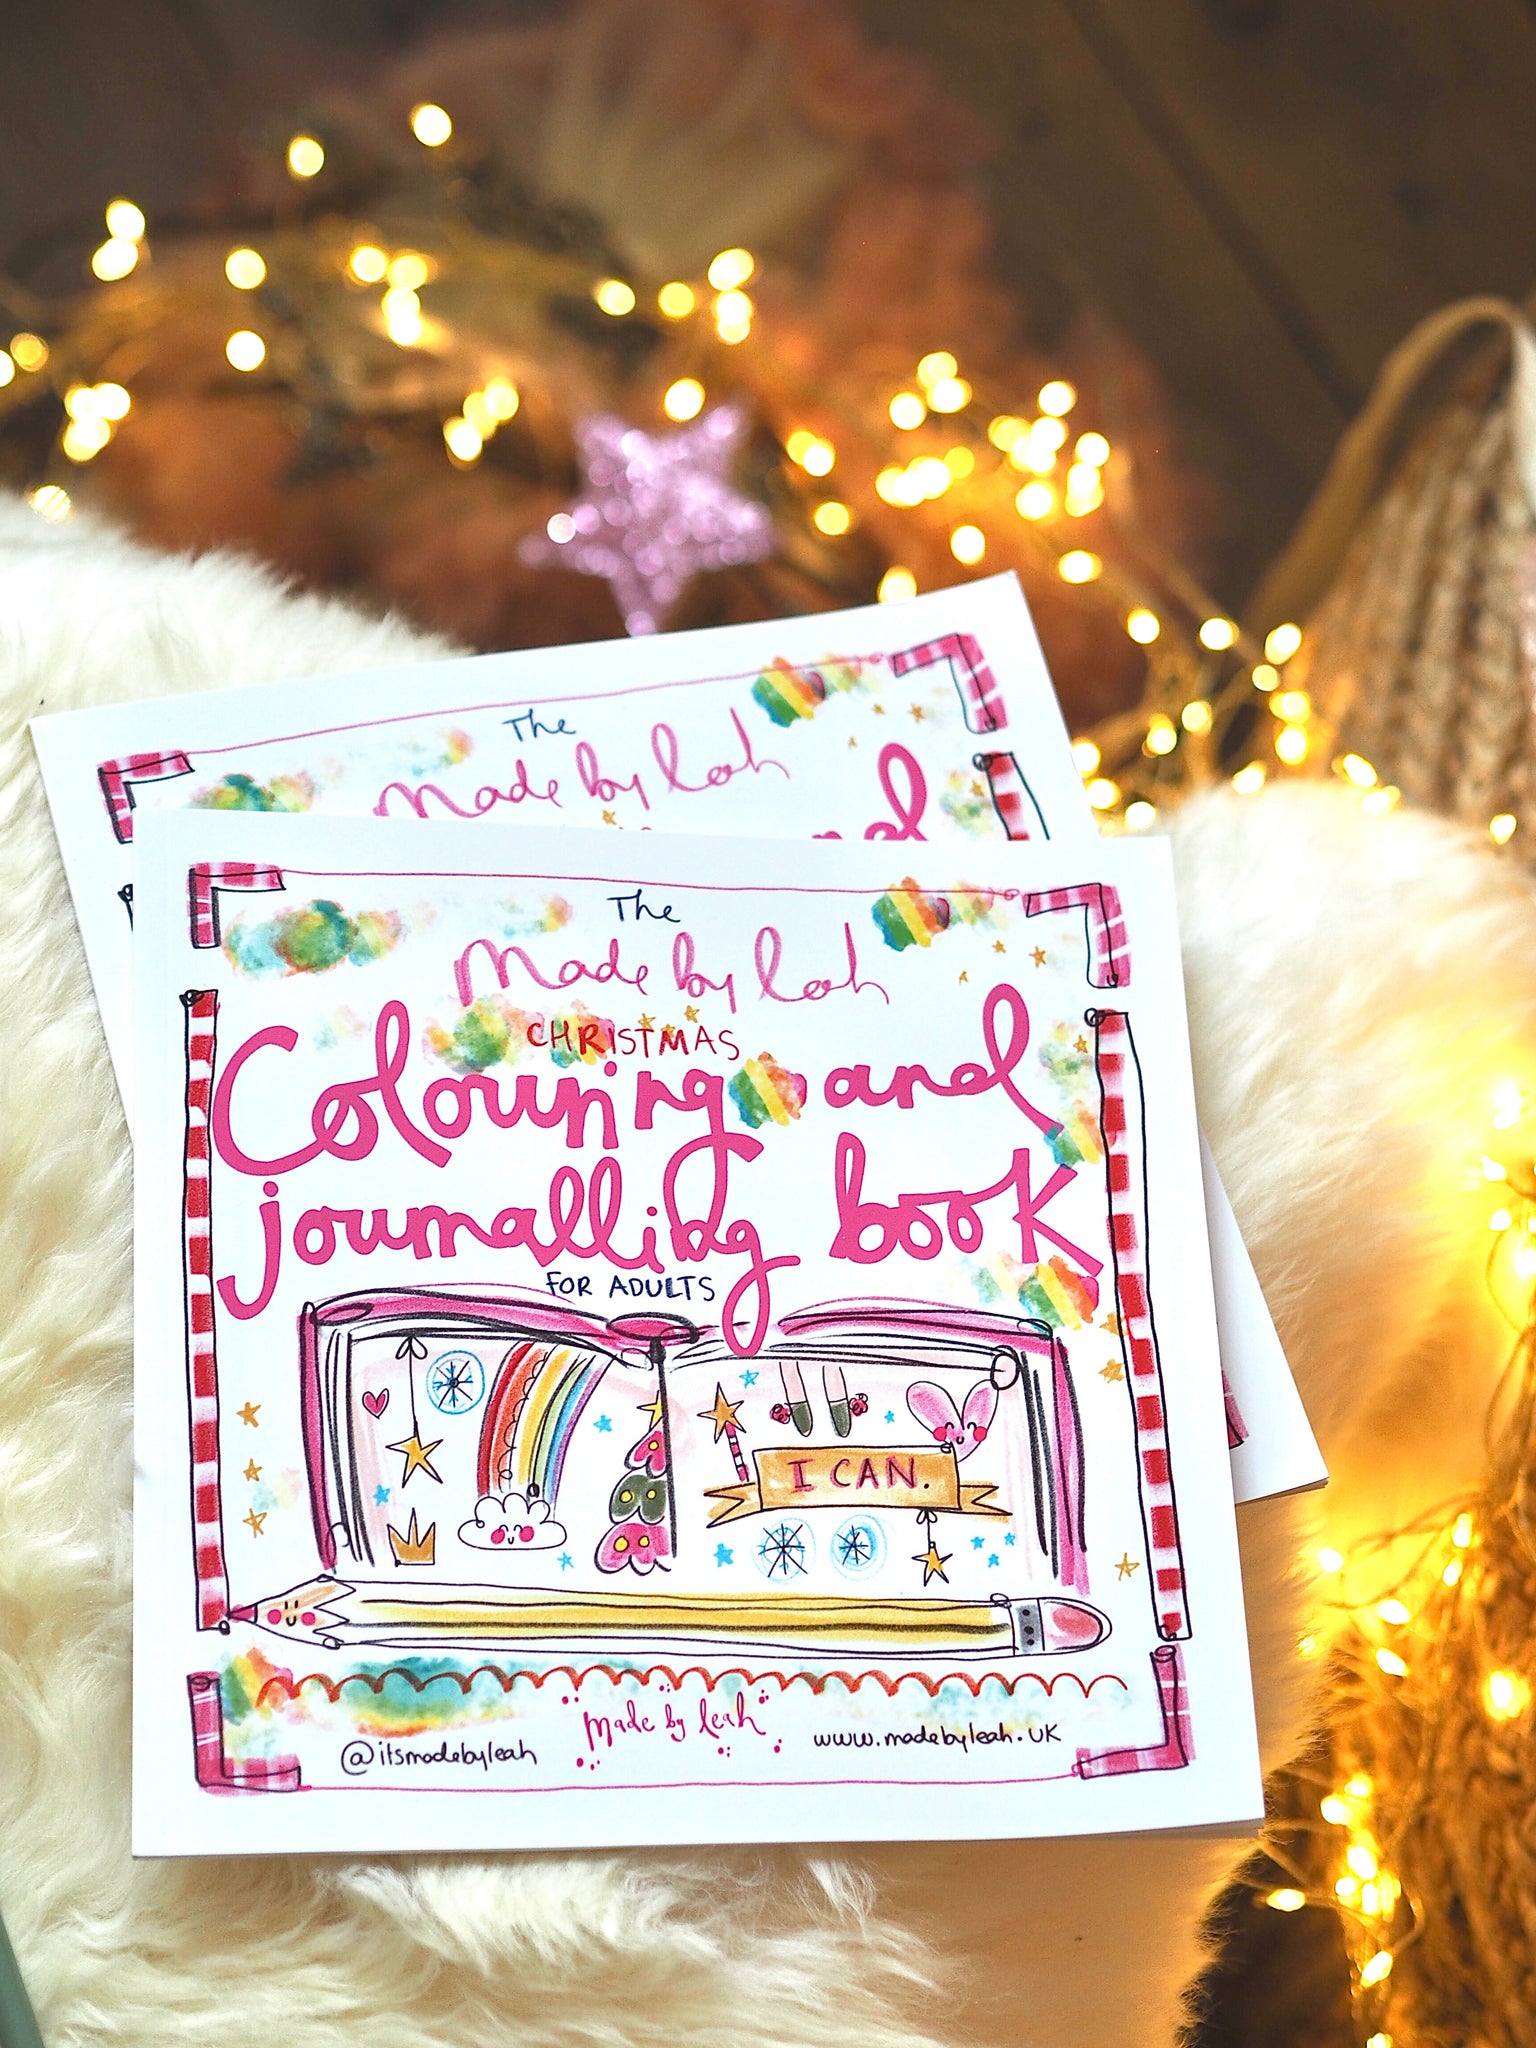 The
Made by leah
The
Made by leah
CHRISTMAS
Colouring and
journalling book
FOR ADULTS
I CAN.
made by leah
@itsmadebyleah
www.madebyleah.UK